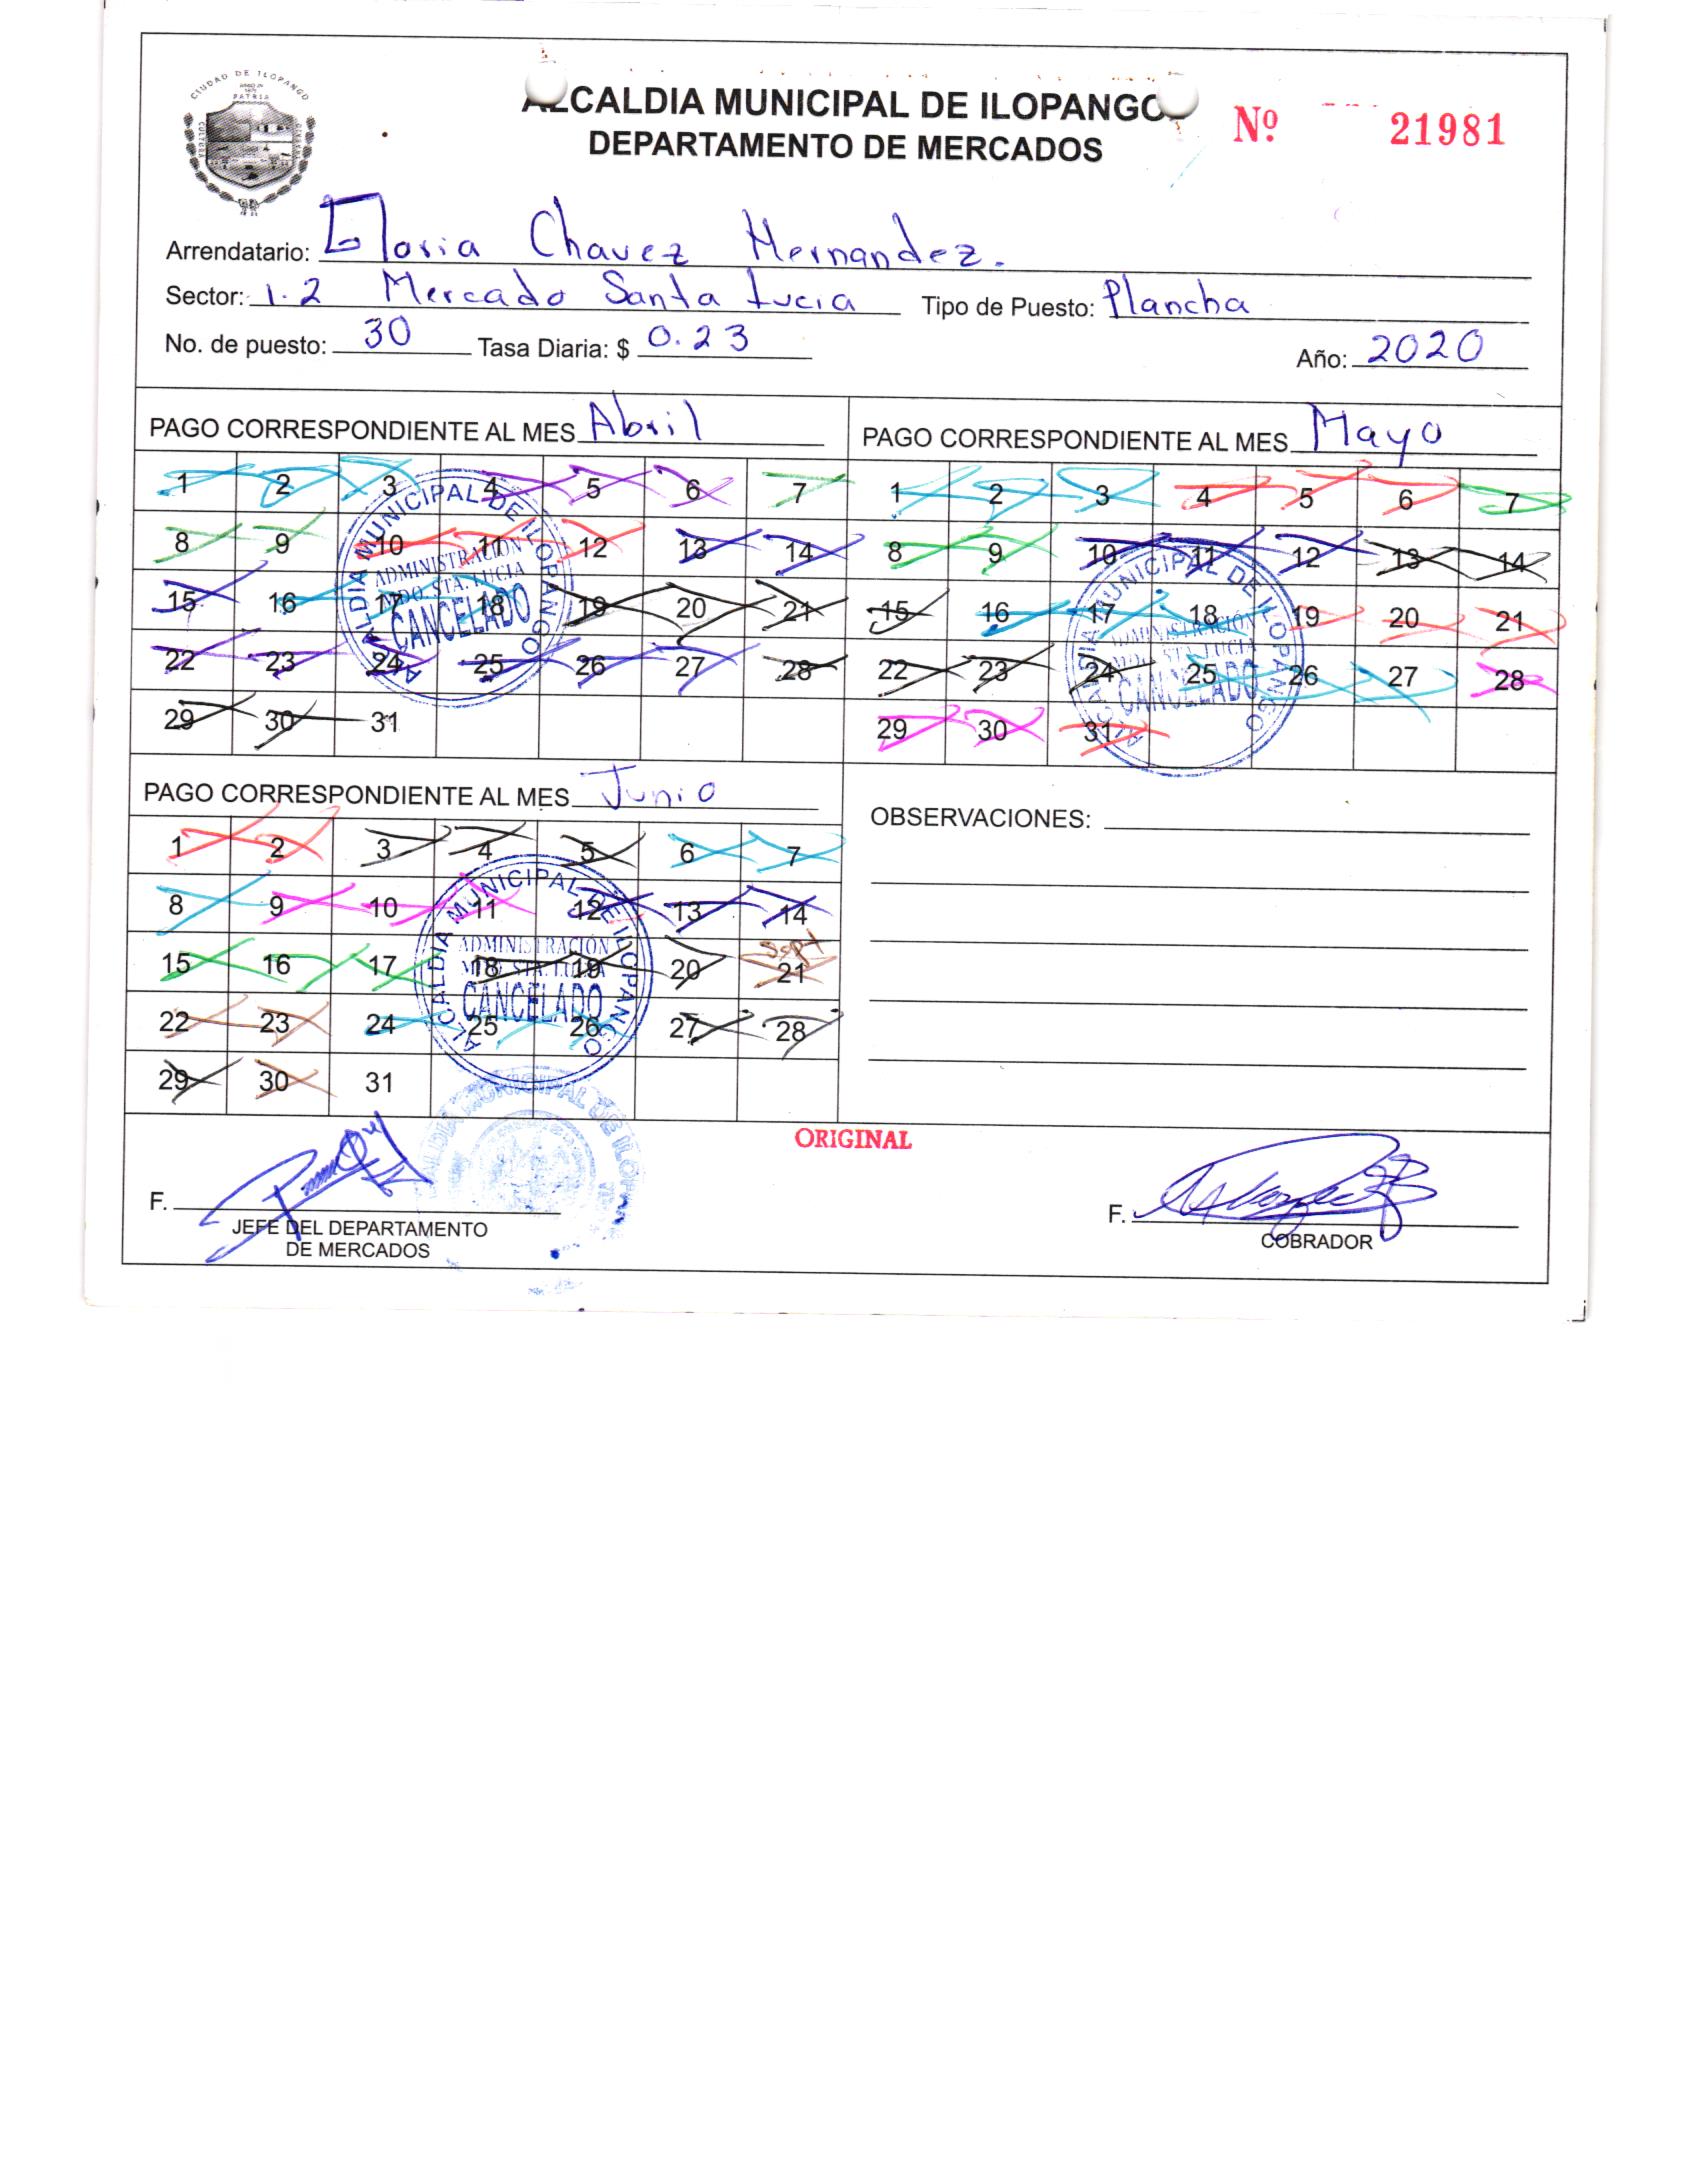 CIUDAD DE ILOPANGO
PATRIA
CULTURA
ALCALDIA MUNICIPAL DE ILOPANGO
DEPARTAMENTO DE MERCADOS
Nº 21981
Arrendatario: Gloria Chavez Hernandez.
Sector: 1.2 Mercado Santa Lucia Tipo de Puesto: Plancha
No. de puesto: 30 Tasa Diaria: $ 0.23 Año: 2020
PAGO CORRESPONDIENTE AL MES Abril
1 2 3 4 5 6 7
8 9 10 11 12 13 14
15 16 17 18 19 20 21
22 23 24 25 26 27 28
29 30 31
ALCALDIA MUNICIPAL DE ILOPANGO
ADMINISTRACION
MDO. STA. LUCIA
CANCELADO
PAGO CORRESPONDIENTE AL MES Mayo
1 2 3 4 5 6 7
8 9 10 11 12 13 14
15 16 17 18 19 20 21
22 23 24 25 26 27 28
29 30 31
ALCALDIA MUNICIPAL DE ILOPANGO
ADMINISTRACION
MDO. STA. LUCIA
CANCELADO
PAGO CORRESPONDIENTE AL MES Junio
1 2 3 4 5 6 7
8 9 10 11 12 13 14
15 16 17 18 19 20 21
22 23 24 25 26 27 28
29 30 31
ALCALDIA MUNICIPAL DE ILOPANGO
ADMINISTRACION
MDO. STA. LUCIA
CANCELADO
OBSERVACIONES:
ALCALDIA MUNICIPAL DE ILOPANGO
ORIGINAL
F.
JEFE DEL DEPARTAMENTO
DE MERCADOS
F.
COBRADOR